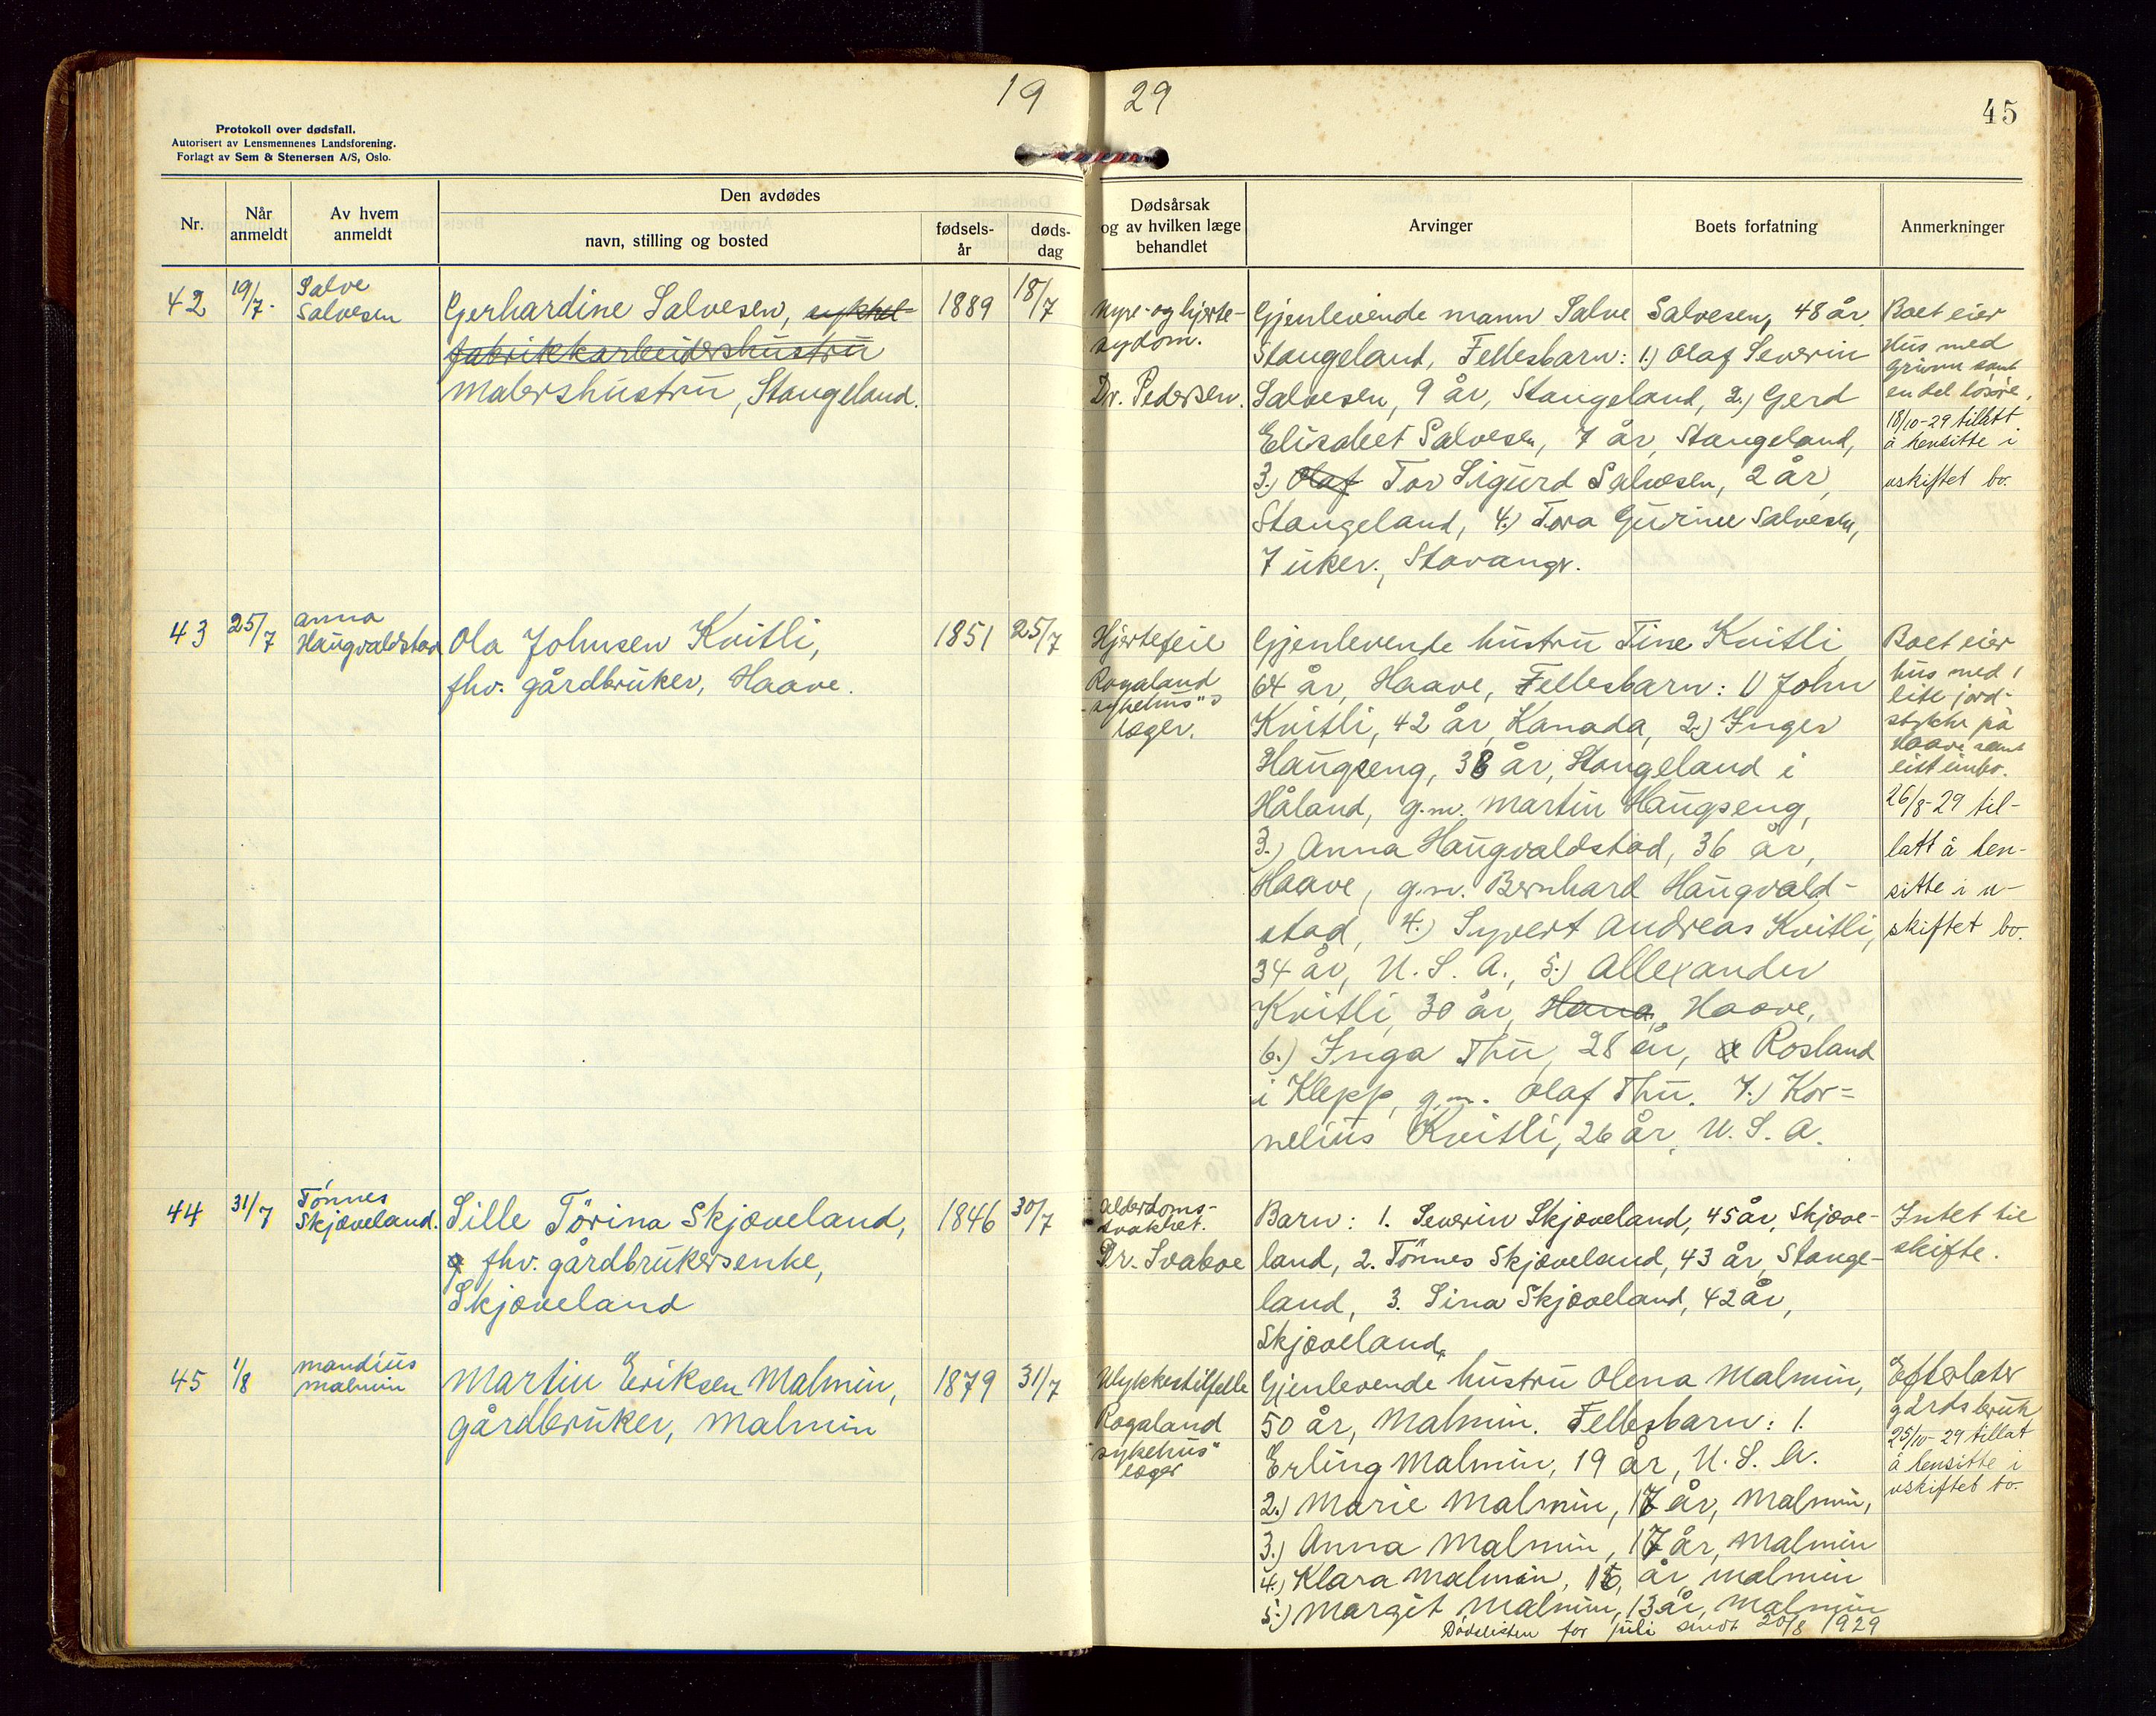 19 29
45
Protokoll over dødsfall.
Autorisert av Lensmennenes Landsforening.
Forlagt av Sem & Stenersen A/S, Oslo.
Nr.
Når anmeldt
Av hvem anmeldt
Den avdødes
navn, stilling og bosted
fødsels-år
døds-dag
Dødsårsak og av hvilken læge behandlet
Arvinger
Boets forfatning
Anmerkninger
42
19/7.
Salve
Salvesen
Gerhardine Salvesen,
fabrikkarbeidershustru
malershustru, Stangeland.
1889
18/7
Nyre- og hjerte-
sydom.
Dr. Pedersen.
Gjenlevende mann Salve Salvesen, 48 år,
Stangeland, Fellesbarn: 1.) Olaf Severin
Salvesen, 9 år, Stangeland, 2.) Gerd
Elisabet Salvesen, 7 år, Stangeland,
3.) Olaf Tor Sigurd Salvesen, 2 år,
Stangeland, 4.) Tora Gurine Salvesen,
7 uker., Stavangr.
Boet eier
hus med
grunn samt
en del løsøre,
18/10-29 tillatt
å hensitte i
uskiftet bo.
43
25/7
Anna
Haugvaldstad
Ola Johnsen Kvitli,
fhv. gårdbruker, Haave.
1851
25/7
Hjertefeil
Rogaland
sykehus"s
læger.
Gjenlevende hustru Tine Kvitli,
64 år, Haave, Fellesbarn: 1) John
Kvitli, 42 år, Kanada, 2.) Inger
Haugseng, 38 år, Stangeland i
Håland, g.m. Martin Haugseng,
3.) Anna Haugvaldstad, 36 år,
Haave, g.m. Bernhard Haugvald-
stad, 4.) Syvert Andreas Kvitli,
34 år, U.S.A., 5.) Allexander
Kvitli, 30 år, Haave,
6.) Inga Thu, 28 år, Rosland
i Klepp, g.m. Olaf Thu. 7.) Kor=
nelius Kvitli, 26 år, U.S.A.
Boet eier
hus med
lite jord-
stykke på
Haave samt
litt innbo.
26/8-29 til-
latt å hen-
sitte i u-
skiftet bo.
44
31/7
Tønnes
Skjæveland.
Sille Tørina Skjæveland,
fhv. gårdbrukersenke,
Skjæveland
1846
30/7
Alderdoms-
svakhet.
Dr. Svaboe
Barn: 1. Severin Skjæveland, 45 år, Skjæve-
land, 2. Tønnes Skjæveland, 43 år, Stange-
land, 3. Sina Skjæveland, 42 år,
Skjæveland.
Intet til
skifte.
45
1/8
Mandius
Malmin
Martin Eriksen Malmin,
gårdbruker, Malmin
1879
31/7
Ulykkestilfelle
Rogaland
sykehus"
læger
Gjenlevende hustru Olena Malmin,
50 år, Malmin. Fellesbarn: 1.
Erling Malmin, 19 år, U.S.A.
2.) Marie Malmin, 17 år, Malmin,
3.) Anna Malmin, 17 år, Malmin
4.) Klara Malmin, 15, år, Malmin
5.) Margit Malmin, 13 år, Malmin
Efterlater
gårdsbruk
25/10-29 tillat
å hensitte i
uskiftet bo.
Dødslisten for juli sendt 20/8 1929